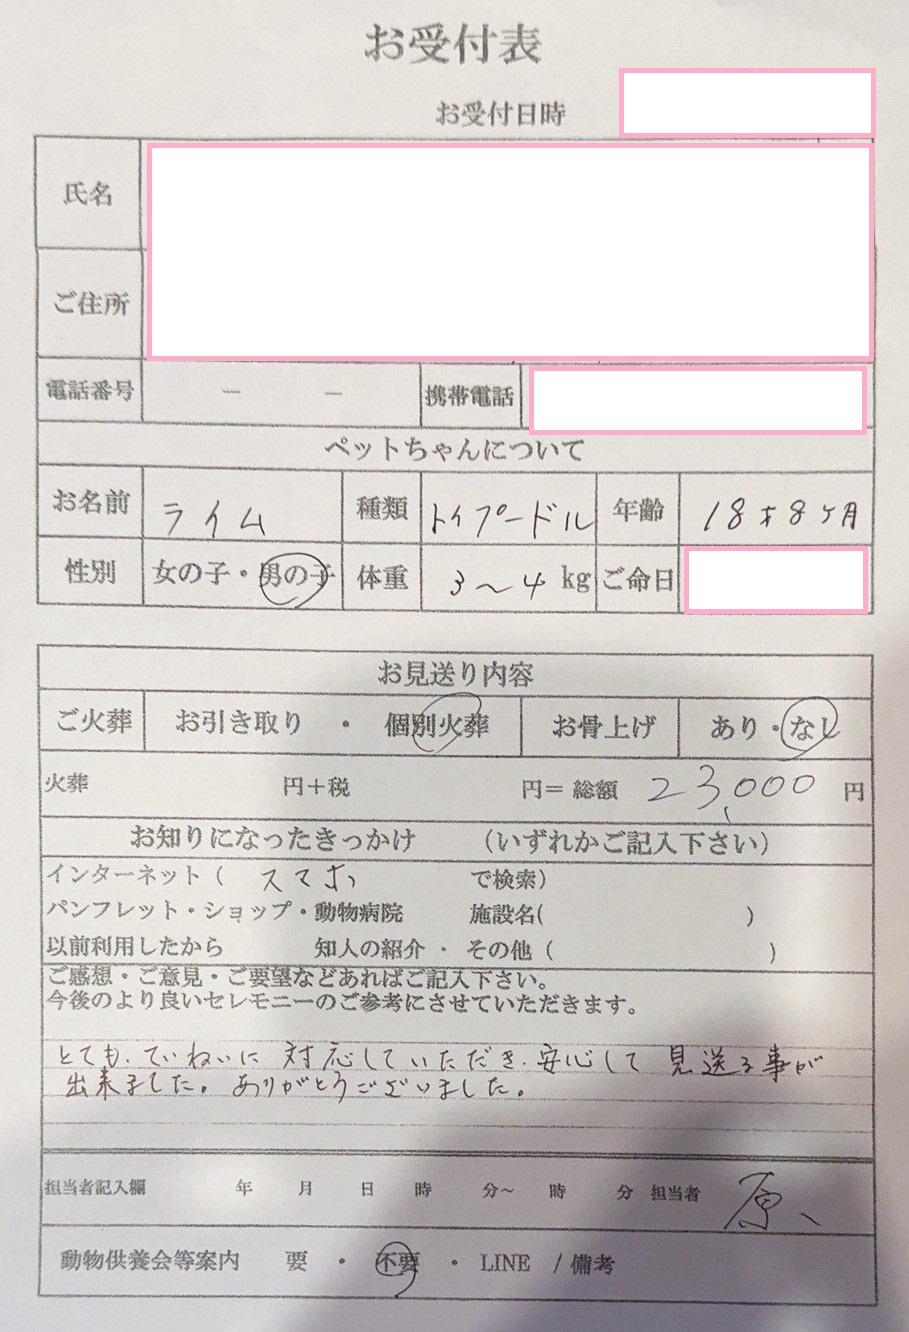 お受付表
お受付日時
氏名
ご住所
電話番号 － － 携帯電話
ペットちゃんについて
お名前 ライム 種類 トイプードル 年齢 18才8ヶ月
性別 女の子・男の子 体重 3～4 kg ご命日
お見送り内容
ご火葬 お引き取り ・ 個別火葬 お骨上げ あり・なし
火葬 円＋税 円＝ 総額 23,000 円
お知りになったきっかけ （いずれかご記入下さい）
インターネット（ スマホ で検索）
パンフレット・ショップ・動物病院 施設名( )
以前利用したから 知人の紹介 ・ その他（ ）
ご感想・ご意見・ご要望などあればご記入下さい。
今後のより良いセレモニーのご参考にさせていただきます。
とても、ていねいに 対応していただき、安心して 見送る事が
出来ました。ありがとうございました。
担当者記入欄 年 月 日 時 分～ 時 分 担当者 原
動物供養会等案内 要 ・ 不要 ・ LINE / 備考